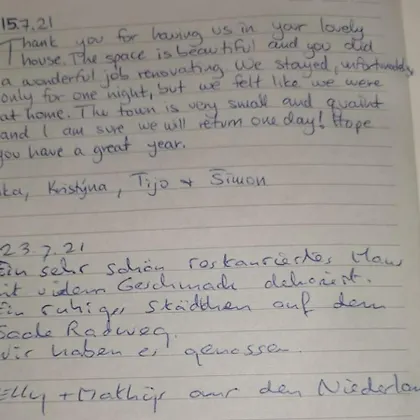 15.7.21
Thank you for having us in your lovely
house. The space is beautiful and you did
a wonderful job renovating. We stayed, unfortunately
only for one night, but we felt like we were
at home. The town is very small and quaint
and I am sure we will return one day! Hope
you have a great year.
ka, Kristýna, Tijo + Šimon
23.7.21
Ein sehr schön restauriertes Haus
it vielem Geschmack dekoriert.
Ein ruhiges Städtchen auf dem
Radweg.
Wir haben es genossen.
Elly + Mathijs aus den Niederlan